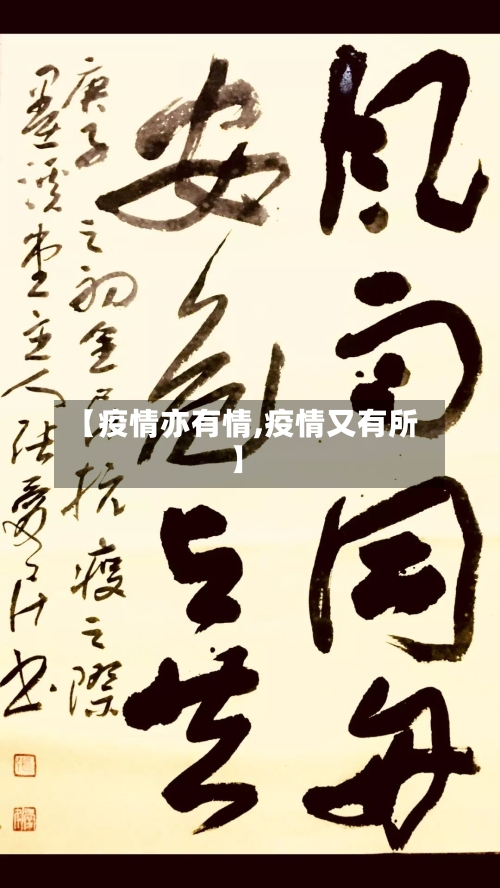 风雨同舟
安危与共
庚子之初全民抗疫之際
堂主人
【疫情亦有情,疫情又有所
】